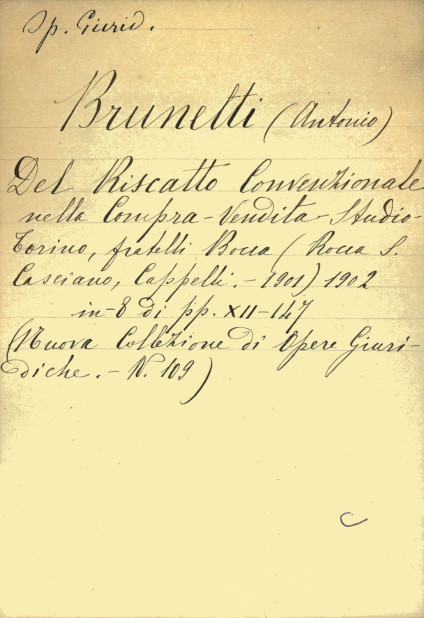 Op. Giurid.
Brunetti (Antonio)
Del Riscatto Convenzionale
nella Compra-Vendita-Studio-
Torino, fratelli Bocca (Rocca S.
Casciano, Cappelli. - 1901) 1902
in-8 di pp. XII-147
(Nuova Collezione di Opere Giuri-
diche. - N. 109)
C